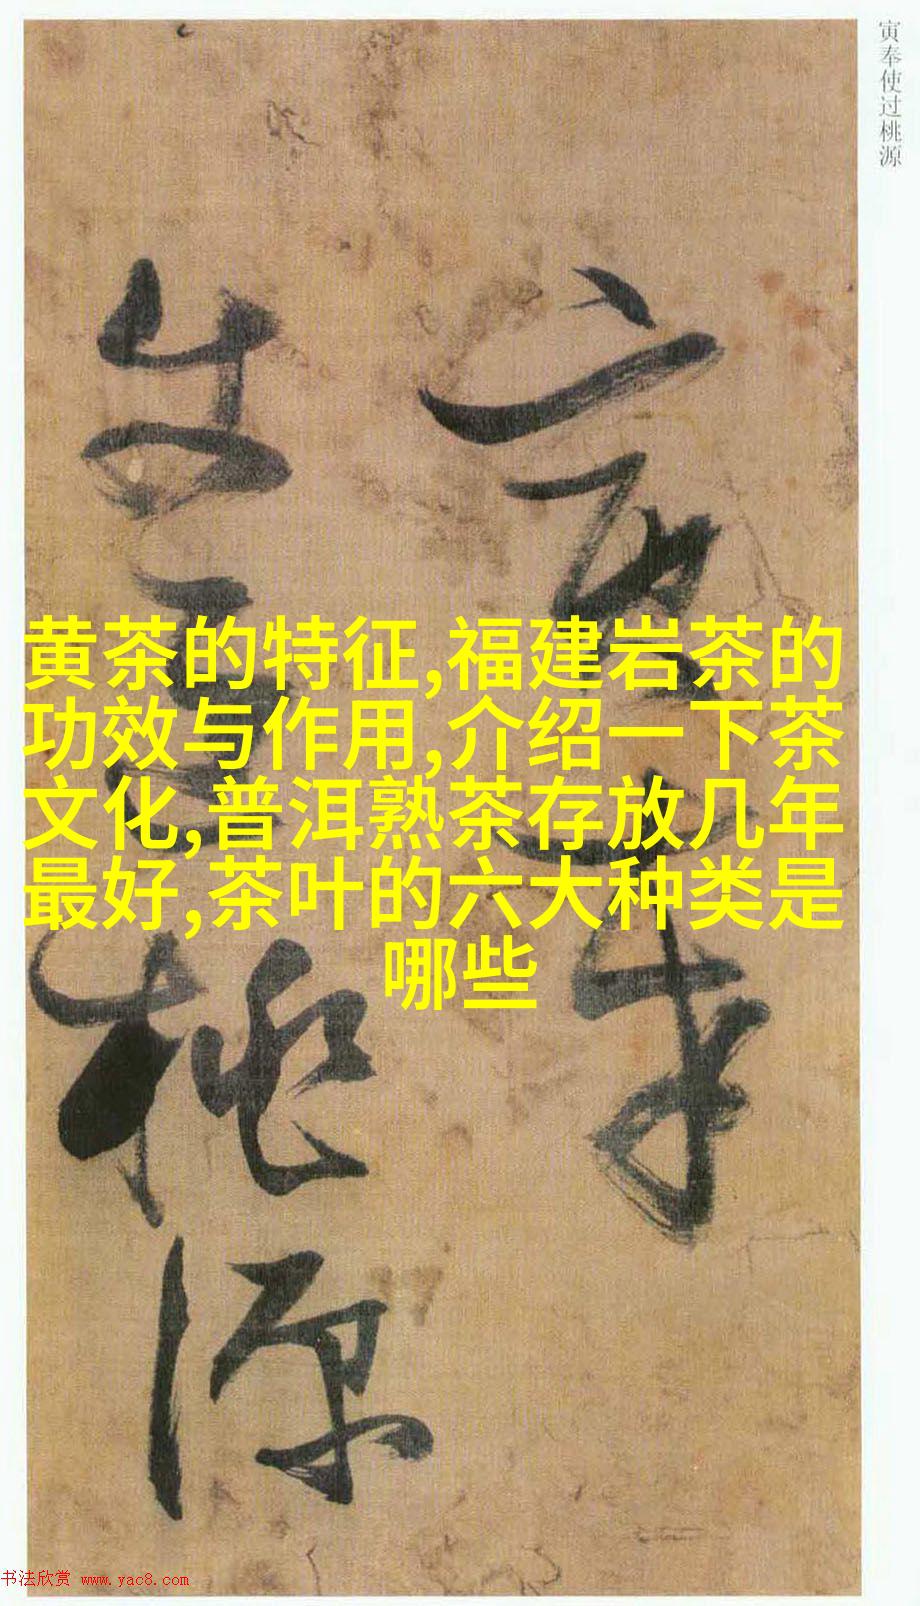 寅奉使过桃源
寅奉
使過
桃源
黄茶的特征,福建岩茶的
功效与作用,介绍一下茶
文化,普洱熟茶存放几年
最好,茶叶的六大种类是
哪些
书法欣赏 www.yac8.com